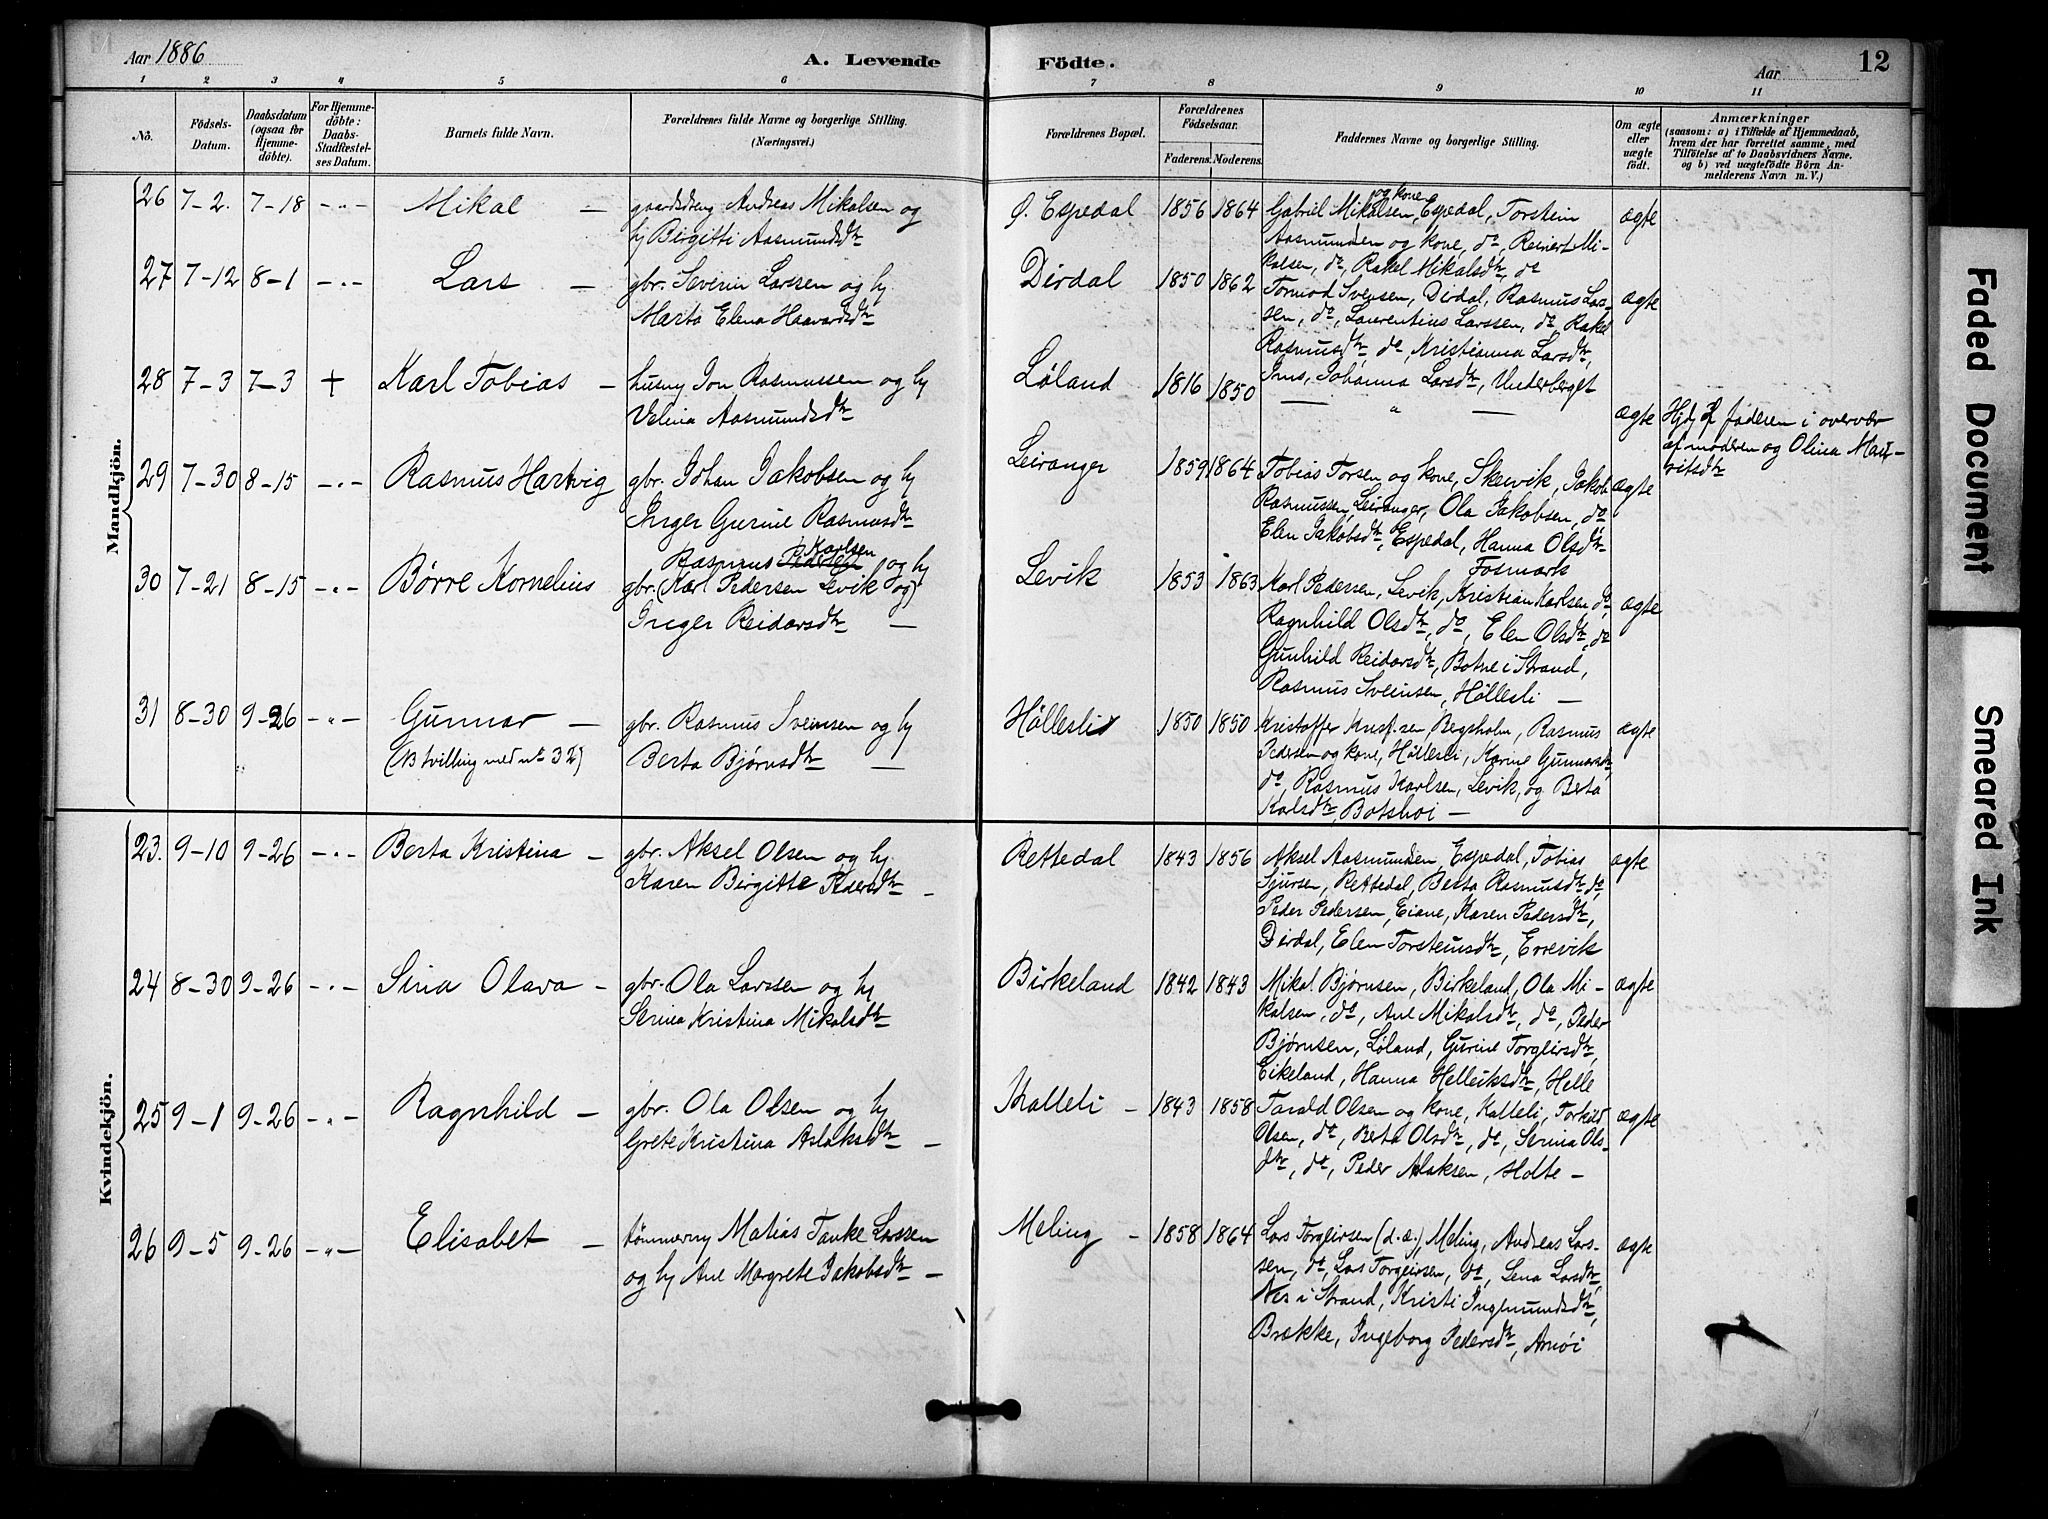 Aar 1886
A. Levende Födte.
Aar 12
1 2 3 4 5 6 7 8 9 10 11
No.
Födsels-Datum.
Daabsdatum (ogsaa for Hjemmedöbte).
For Hjemmedöbte: Daabs-Stadfæstelses Datum.
Barnets fulde Navn.
Forældrenes fulde Navne og borgerlige Stilling.
(Næringsvei.)
Forældrenes Bopæl.
Forældrenes Födselsaar.
Faderens. Moderens.
Faddernes Navne og borgerlige Stilling.
Om ægte eller uægte födt.
Anmærkninger
(saasom: a) i Tilfælde af Hjemmedaab,
hvem der har forrettet samme, med
Tilföielse af to Daabsvidners Navne,
og b) ved uægtefödte Börn Anmelderens Navn m. V.)
Mandkjön.
26 7-2. 7-18 -"- Mikal - gaardsdreng Andreas Mikalsen og
hj Birgitti Aasmundsdtr
Ø. Espedal 1856 1864 Gabriel Mikalsen og kone, Espedal, Torstein
Aasmundsen og kone, do, Reinert Mi-
kalsen, do, Rakel Mikalsdtr, do
ægte
27 7-12 8-1 -"- Lars - gbr. Severin Larssen og hj
Marta Elena Haavardsdtr
Dirdal 1850 1862 Tormod Svensen, Dirdal, Rasmus Lars-
sen, do, Laurentius Larssen, do, Rakel
Rasmusdtr, do, Kristianna Larsdtr,
Ims, Johanna Larsdtr, Underberget
ægte
28 7-3 7-3 + Karl Tobias - husmd Jon Rasmussen og hj
Velina Aasmundsdtr
Løland 1816 1850 — " —
ægte Hjdø af faderen i overvær
af moderen og Olina Mau-
ritsdtr
29 7-30 8-15 -"- Rasmus Hartvig gbr. Johan Jakobsen og hj
Inger Gurine Rasmusdtr
Leiranger 1859 1864 Tobias Torsen og kone, Skeivik, Jakob
Rasmussen, Leiranger, Ola Jakobsen, do
Elen Jakobsdtr, Espedal, Hanna Olsdtr
Fosmark
ægte
30 7-21 8-15 -"- Børre Kornelius Rasmus Pedersen Karlsen og hj
gbr. (Karl Pedersen Levik og)
Inger Reidarsdtr —
Levik 1853 1863 Karl Pedersen, Levik, Kristian Karlsen do,
Ragnhild Olsdtr, do, Elen Olsdtr, do
Gunhild Reidarsdtr, Botne i Strand,
Rasmus Sveinsen, Hølleslí —
ægte
31 8-30 9-26 -"- Gunnar - gbr. Rasmus Sveinsen og hj
(NB tvilling med no 32) Berta Bjørnsdtr —
Hølleslí 1850 1850 Kristoffer Krist.sen, Bergsholm, Rasmus
Pedersen og kone, Hølleslí, Karine Gunnarsdtr,
do, Rasmus Karlsen, Levik, og Berta
Karlsdtr, Botshei —
ægte
Kvindekjön.
23. 9-10 9-26 -"- Berta Kristina - gbr. Aksel Olsen og hj.
Karen Birgitte Pedersdtr -
Rettedal 1843 1856 Aksel Aasmundsen, Espedal, Tobias
Sjursen, Rettedal, Berta Rasmusdtr, do,
Peder Pedersen, Eiane, Karen Pedersdtr,
Dirdal, Elen Torsteinsdtr, Errevik
ægte
24 8-30 9-26 -"- Sina Olava - gbr. Ola Larssen og hj
Serina Kristina Mikalsdtr
Birkeland 1842 1843 Mikal Bjørnsen, Birkeland, Ola Mi-
kalsen, do, Ane Mikalsdtr, do, Peder
Bjørnsen, Løland, Gurine Torgeirsdtr,
Eikeland, Hanna Helleiksdtr, Helle
ægte
25 9-1 9-26 -"- Ragnhild - gbr. Ola Olsen og hj
Grete Kristina Aslaksdtr -
Kalleli - 1843 1858 Tarald Olsen og kone, Kalleli, Torkild
Olsen, do, Berta Olsdtr, do, Serina Ols-
dtr, do, Peder Aslaksen, Holte -
ægte
26 9-5 9-26 -"- Elisabet - tømmerm Matias Tanke Larssen
og hj Ane Margrete Jakobsdtr -
Meling - 1858 1864 Lars Torgeirsen (d.æ.), Meling, Andreas Lars-
sen, do, Lars Torgeirsen, do, Lena Larsdtr,
Nes i Strand, Kristi Ingemundsdtr,
Brække, Ingeborg Pedersdtr, Arnøi
ægte
Faded Document
Smeared Ink